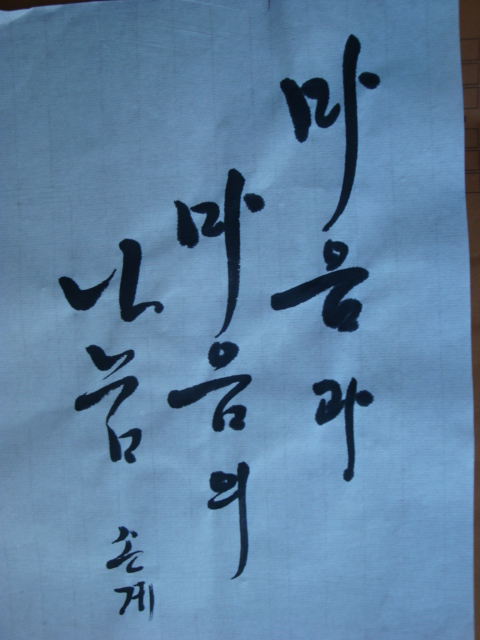 마음과
마음의
나눔
손계